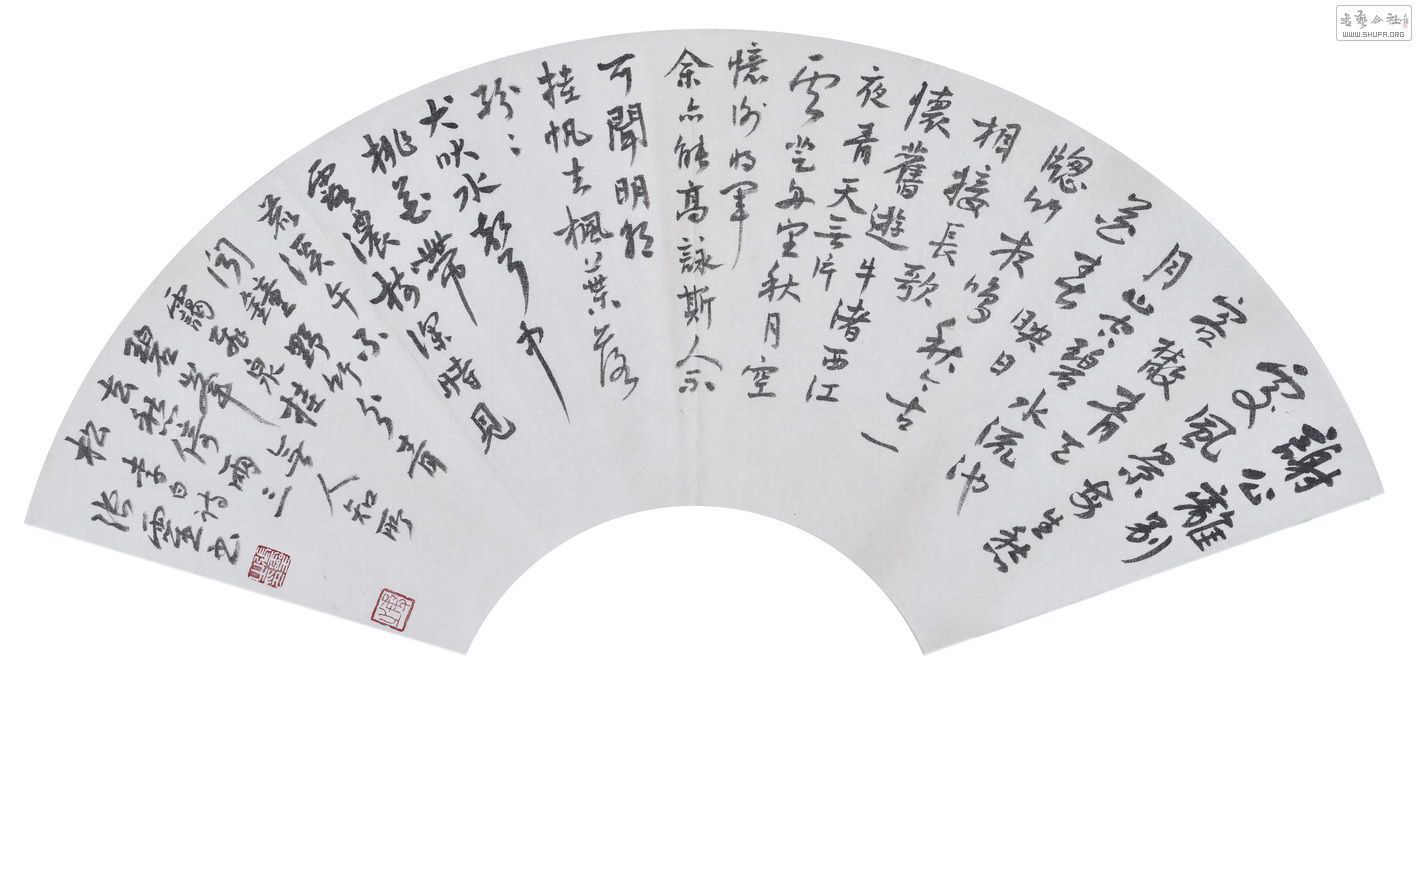 謝公離別
處風景每生愁
客散青天
月山空碧水流池
花春映日
窗竹夜鳴秋今古一
相接長歌
懷舊遊牛渚西江
夜青天無片
雲登舟望秋月空
憶謝將軍
余亦能高詠斯人不
可聞明朝
挂帆去楓葉落
紛〻
犬吠水聲中
桃花帶
露濃樹深時見
鹿溪午不
聞鐘野竹分青
靄飛泉挂
碧峯無人知所
去愁倚兩三
松李白詩
書
WWW.SHUFA.ORG